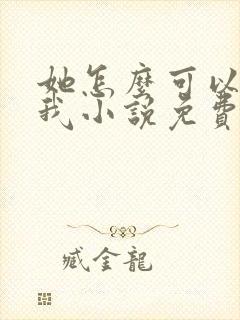 她怎麼可以
我小說免費
臧金龍